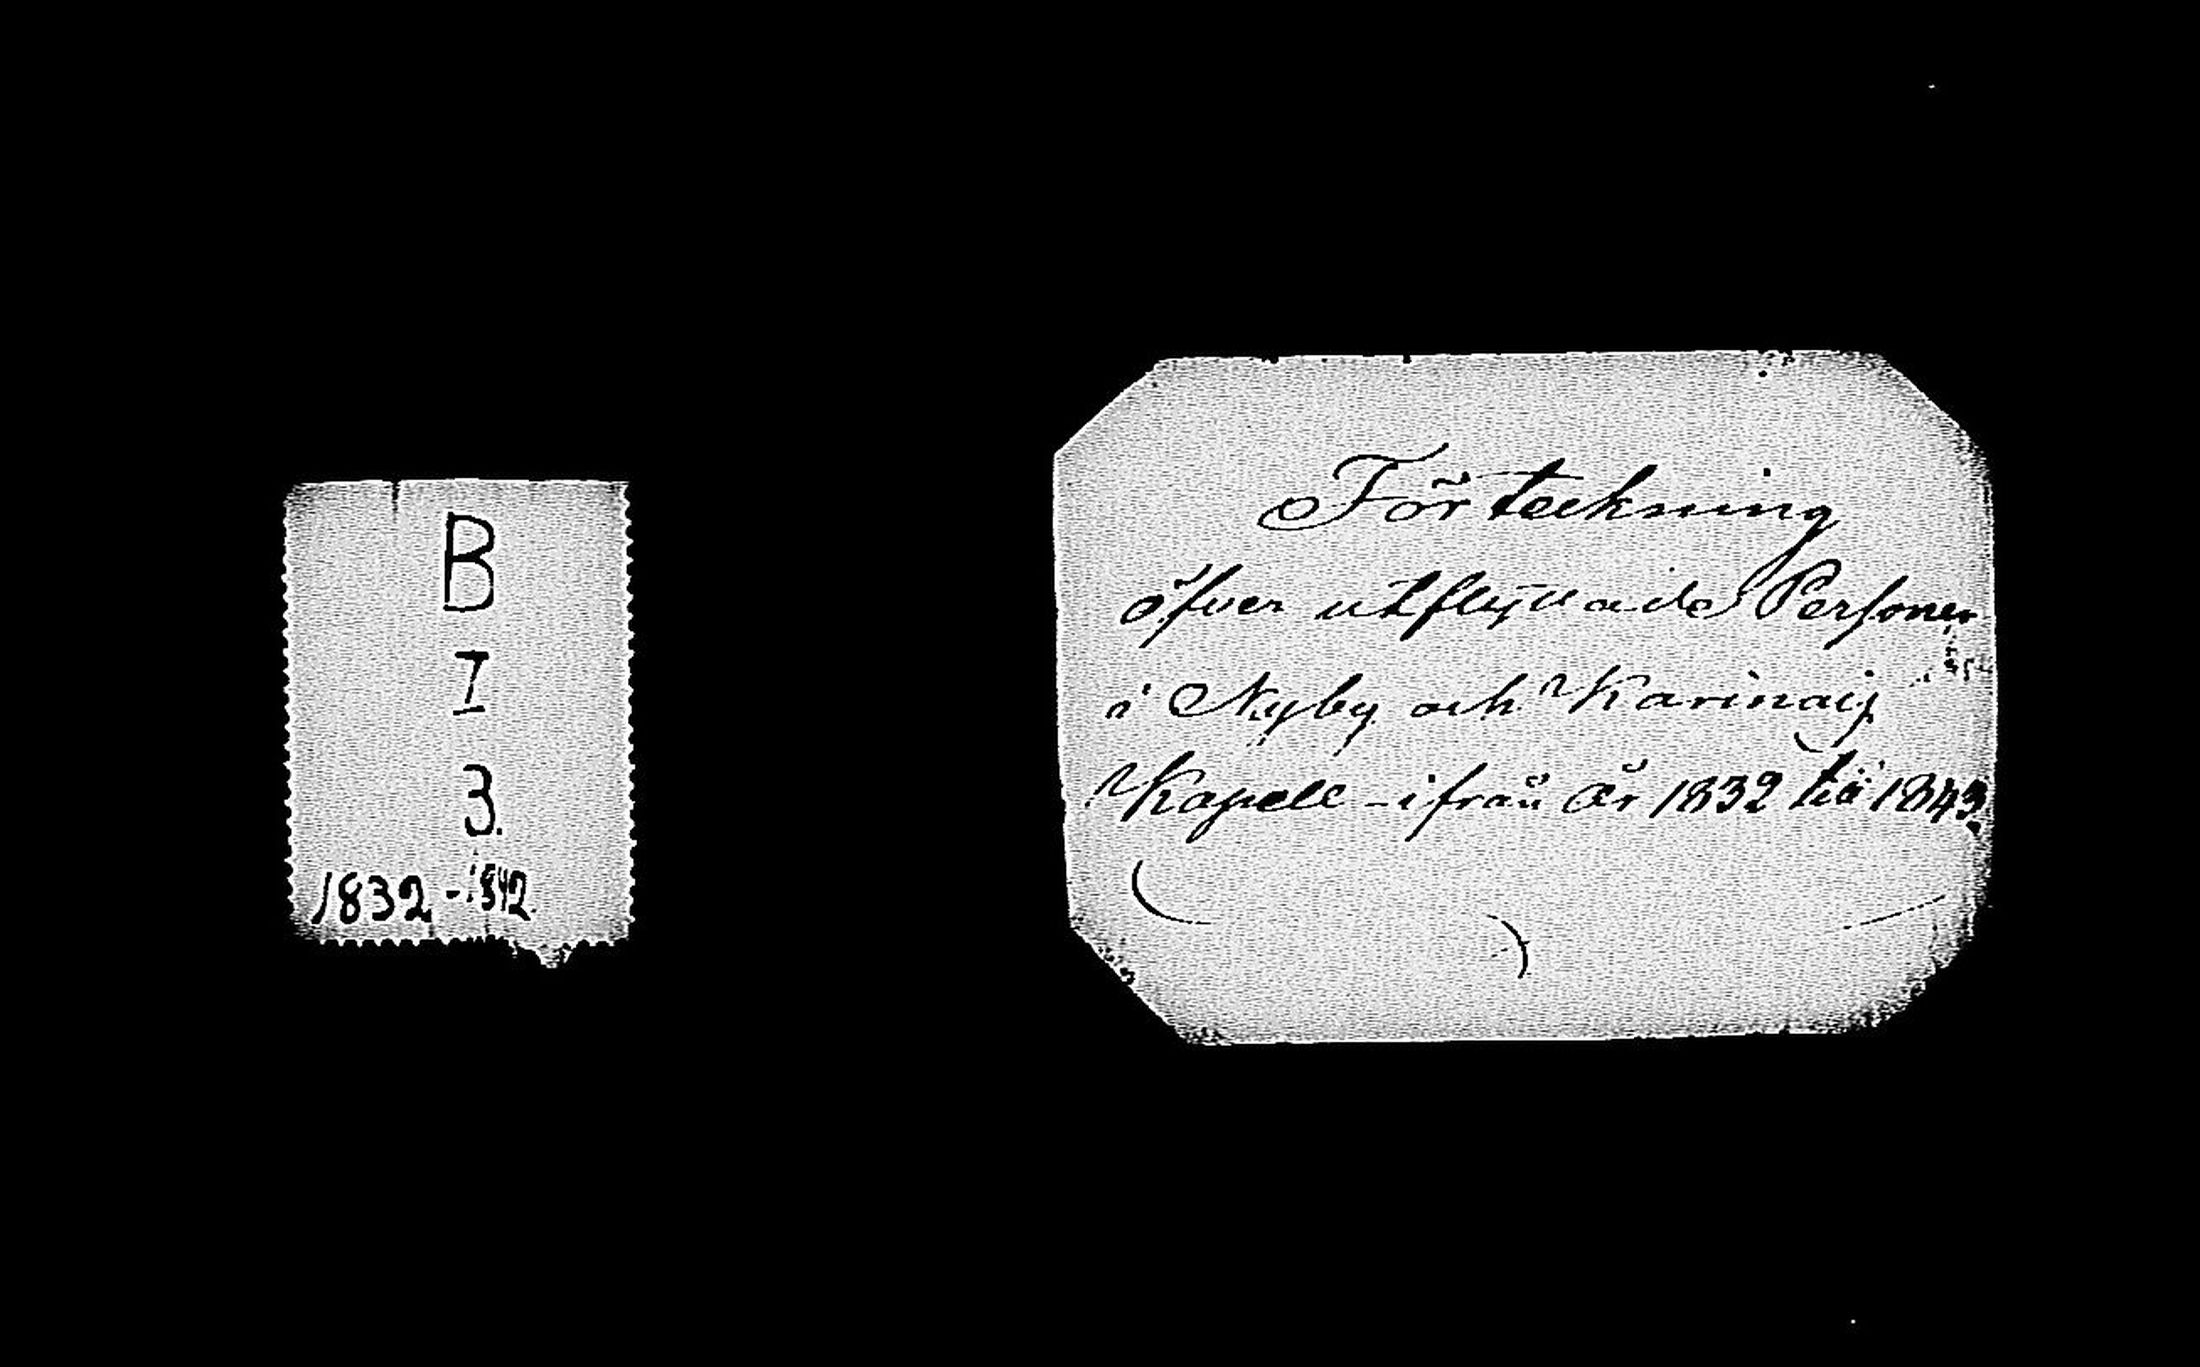 B
I
3.
1832-1842.
Förteckning
öfver utflyttade Personer
i Nyby och Karinais
Kapell - ifrån År 1832 till 1843.